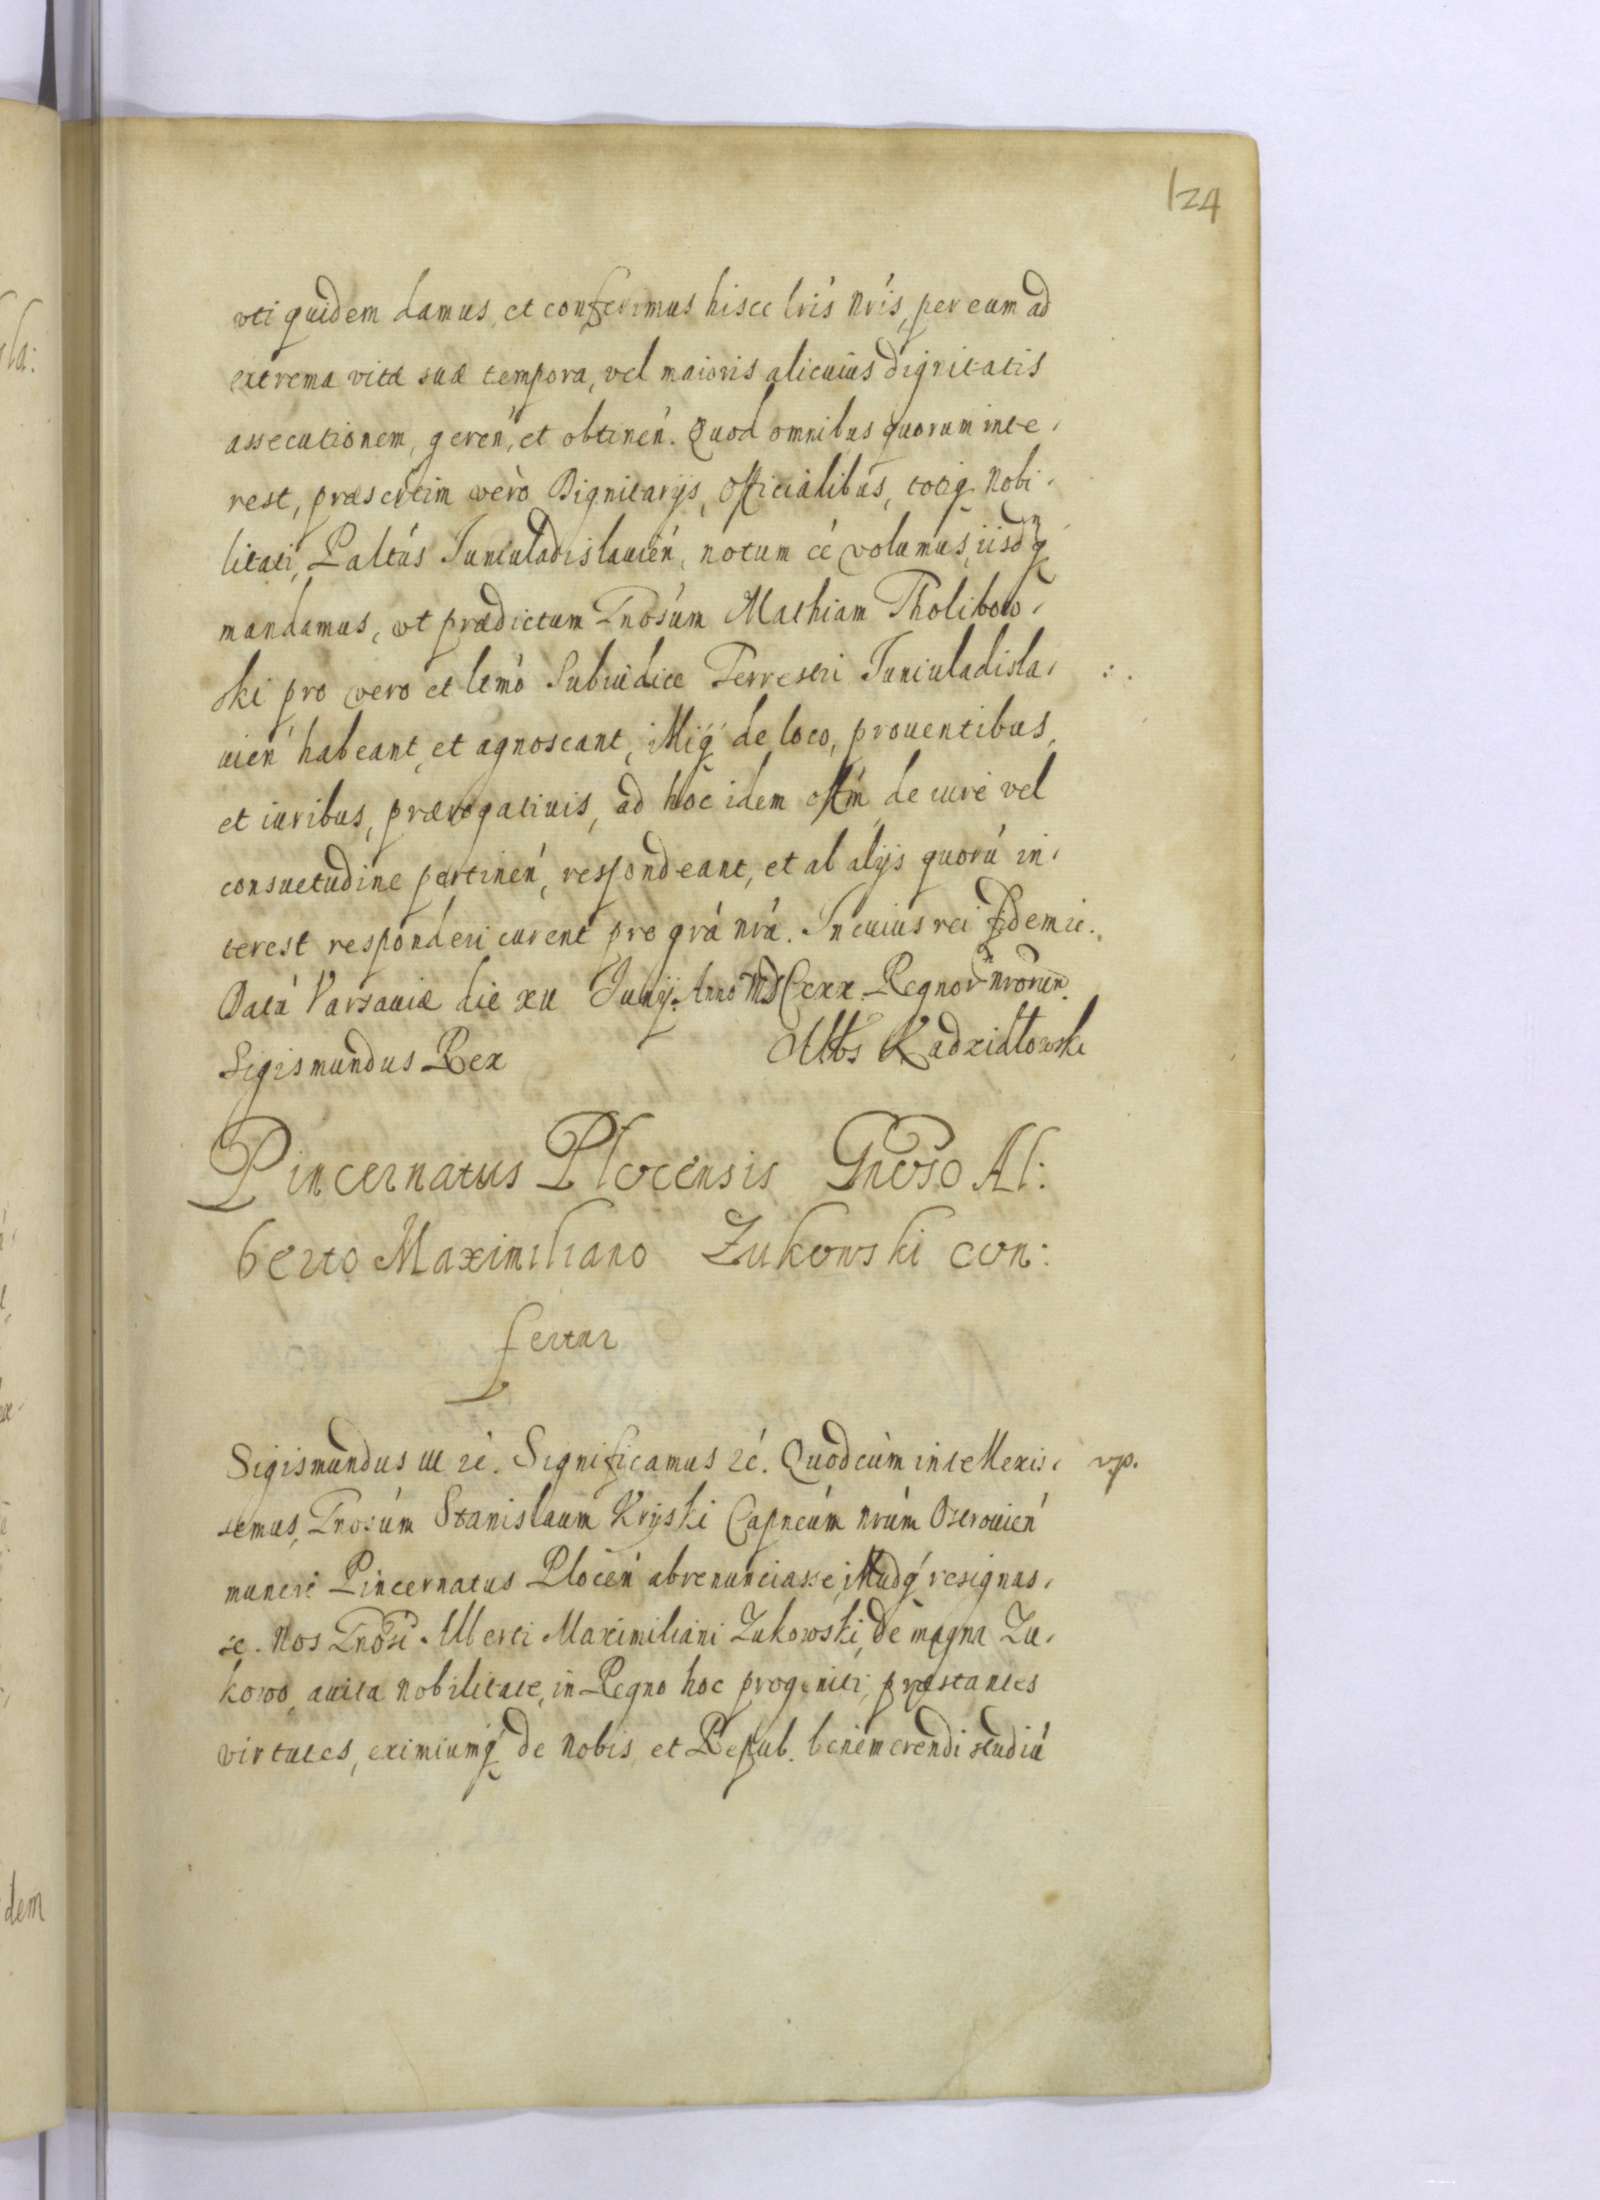 124
vti quidem damus, et conferimus hisce lrís nrís, per eum ad
extrema vitæ suæ tempora, vel maioris alicuius dignitatis
assecutionem, geren, et obtinen. Quod omnibus quorum inte,
rest, præsertim verò Dignitarijs, Officialibus, totiq Nobi,
litati, Paltús Iuniuladislauień, notum cé volumus, iisdq
mandamus, vt prædictum Gnosúm Mathiam Tholibow,
ski pro vero et lrmó Subiudice Terrestri Iuniuladisla,
uień habeant, et agnoscant, illiq de loco, prouentibus,
et iuribus, prærogatiuis, ad hoc idem offm de iure vel
consuetudine pertineń, respondeant, et ab alijs quorú in,
terest responderi curent pro grá nrá. In cuius rei fidem zc.
Datú Varsauiæ die XII Iunij. Anno MDCXX. Regnor nrorun.
Sigismundus Rex Albs Kadzidłowski
Pincernatus Plocensis Gnoso Al:
berto Maximiliano Zukowski con:
fertur
Sigismundus III zc. Significamus zc. Quod cùm intellexis, vp.
semus, Gnosúm Stanislaum Kryski Capneúm nrúm Oserouień
muneri Pincernatus Płoceń abrenunciasse, illudq resignas,
se. Nos Gnosi Alberti Maximiliani Zukowski, de magna Zu,
kowo, auita nobilitate, in Regno hoc progeniti, præstantes
virtutes, eximiumq de nobis, et Repub. benemerendi studiú